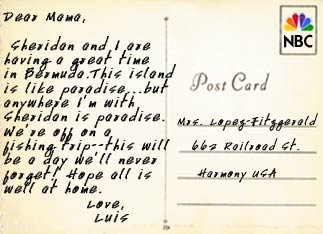 Dear Mama,
Sheridan and I are
having a great time
in Bermuda.This island
is like paradise...but
anywhere I'm with
Sheridan is paradise.
We're off on a
fishing trip--this will
be a day we'll never
forget! Hope all is
well at home.
Love,
Luis
NBC
Post Card
Mrs. Lopez-Fitzgerald
662 Railroad St.
Harmony USA